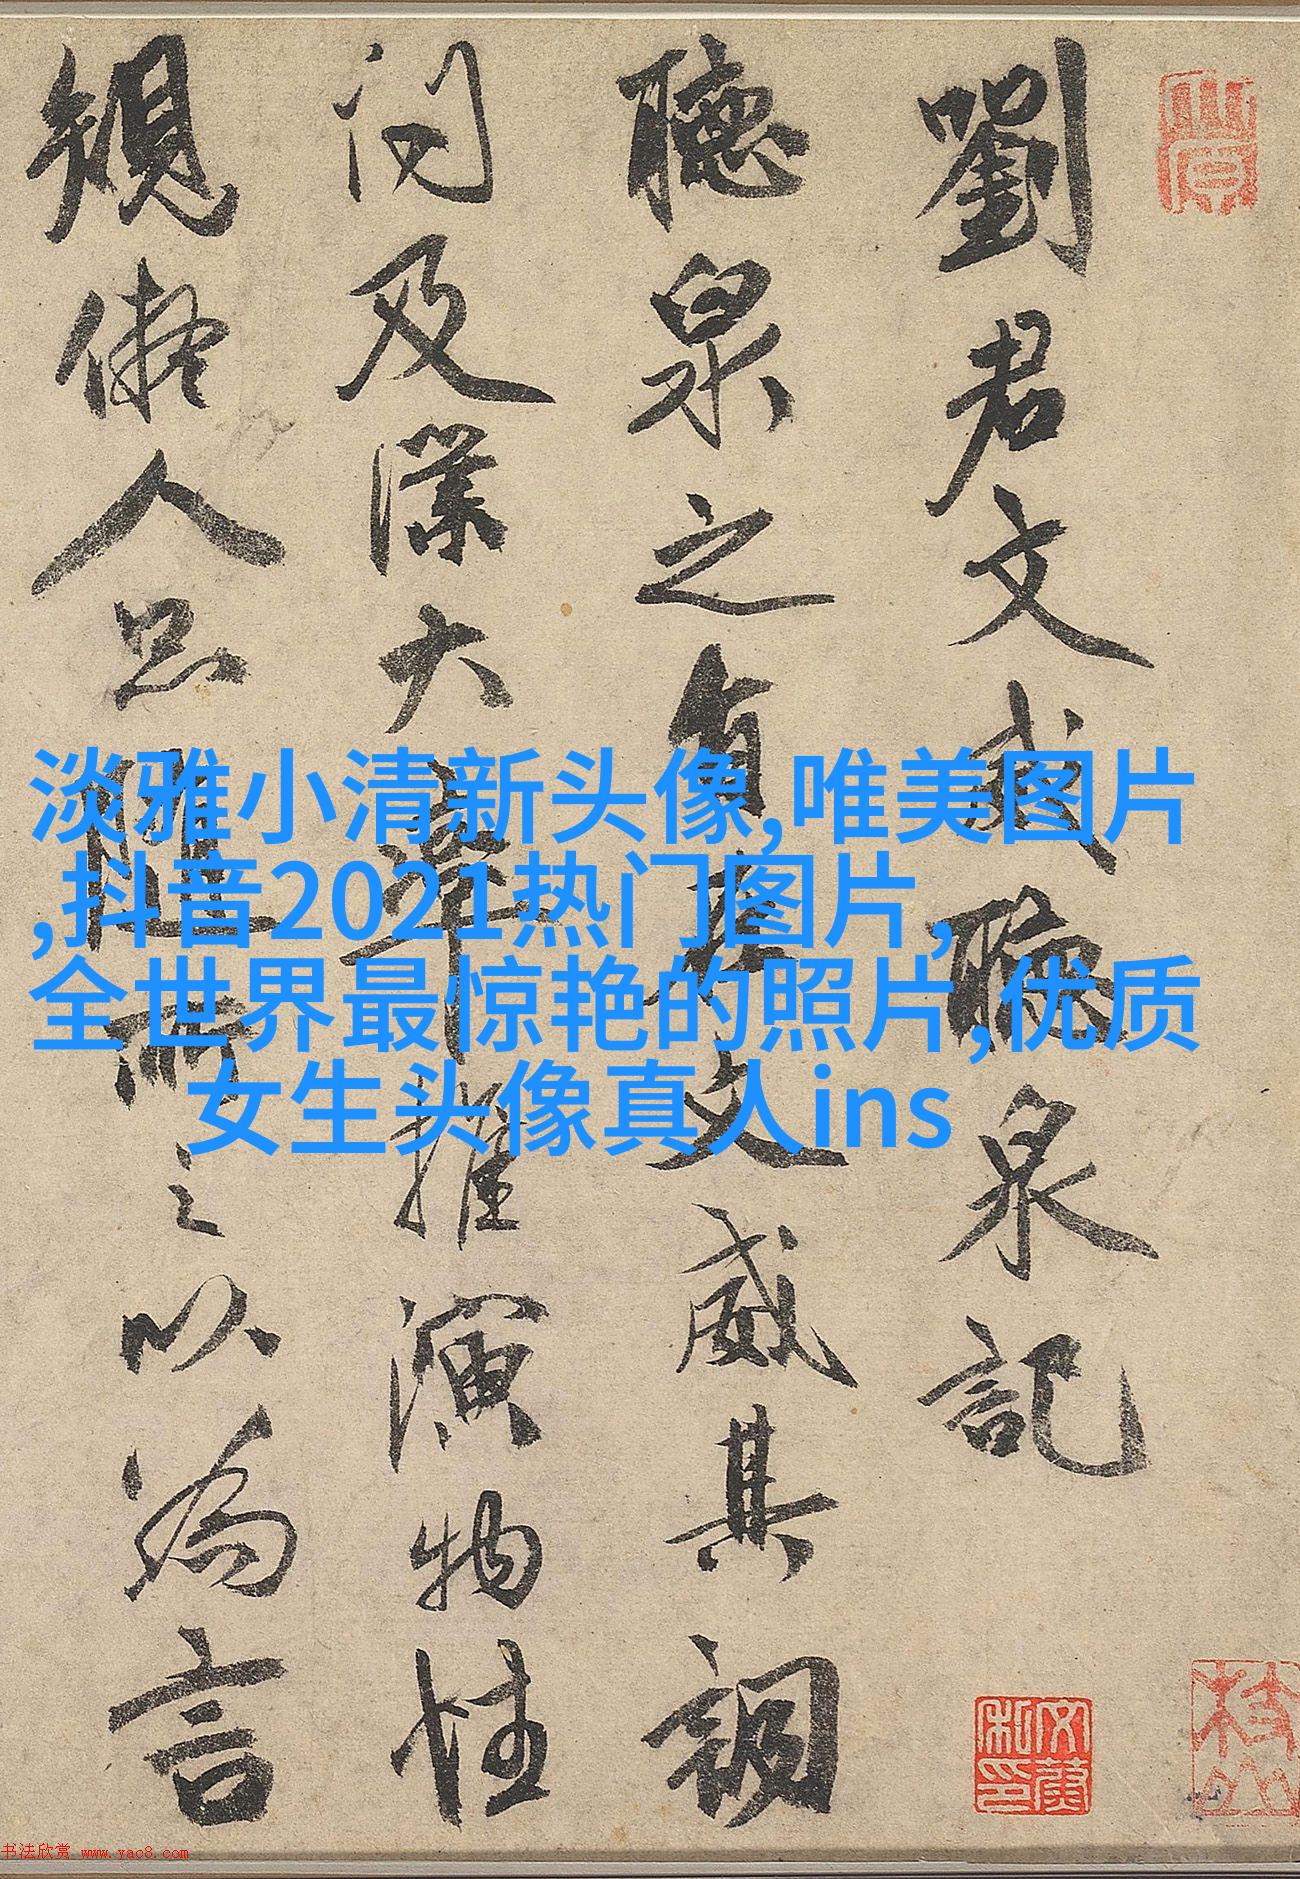 劉君文聽泉記
聽泉之有文威其調
问及大推演物性
人之以為言
淡雅小清新头像,唯美图片
,抖音2021热门图片,
全世界最惊艳的照片,优质
女生头像真人ins
书法欣赏 www.yac8.com